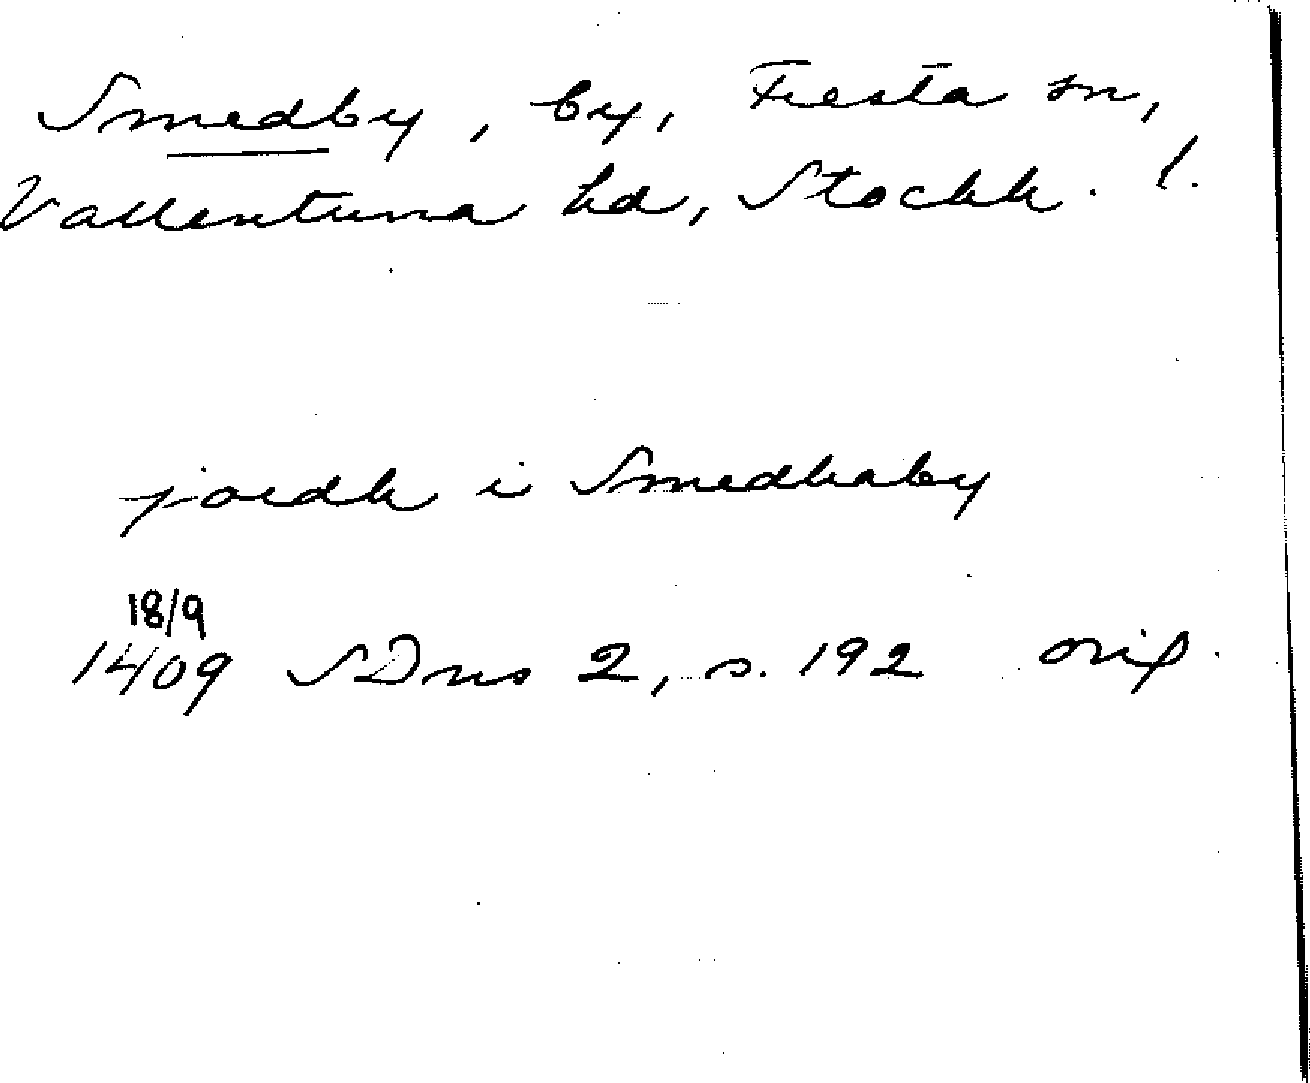 Smedby, by, Fresta sn,
Vallentuna hd, Stockh. l.
jordh i Smedhaby
18/9
1409 SDns 2, s. 192 orig.